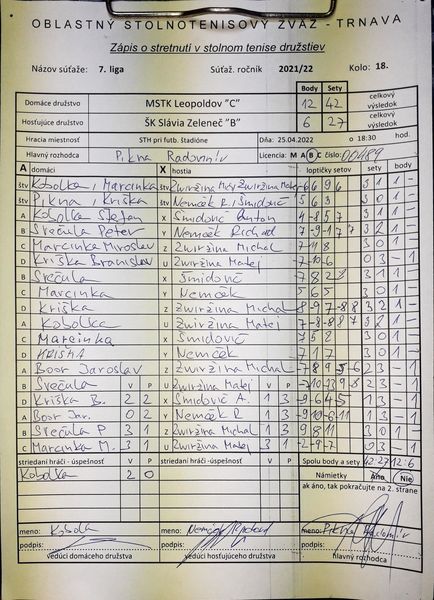 OBLASTNÝ STOLNOTENISOVÝ ZVÄZ - TRNAVA
Zápis o stretnutí v stolnom tenise družstiev
Názov súťaže: 7. liga Súťaž. ročník 2021/22 Kolo: 18.
Body Sety
Domáce družstvo MSTK Leopoldov "C" 12 42 celkový výsledok
Hosťujúce družstvo ŠK Slávia Zeleneč "B" 6 27 celkový výsledok
Hracia miestnosť STH pri futb. štadióne Dňa: 25.04.2022 o 18:30 hod.
Hlavný rozhodca Pikna Radomír Licencia: M A B C číslo: 00489
A domáci X hostia loptičky setov sety body
štv Kobolka, Marcinka štv Zwiržina Mich, Zwiržina Matej 3 1 1 -
štv Pikna, Kriška štv Nemček R, Šmidovič 5 6 3 3 0 1 -
A Kobolka Štefan X Šmidovič Anton 3 1 1 -
B Srečula Peter Y Nemček Richard 3 2 1 -
C Marcinka Miroslav Z Zwiržina Michal 7 11 8 3 0 1 -
D Kriška Branislav U Zwiržina Matej -7 -10 -6 0 3 - 1
B Srečula X Šmidovič 3 1 1 -
C Marcinka Y Nemček 5 6 5 3 0 1 -
D Kriška Z Zwiržina Michal 3 2 1 -
A Kobolka U Zwiržina Matej 3 2 1 -
C Marcinka X Šmidovič 7 5 8 3 0 1 -
D Kriška Y Nemček 7 1 7 3 0 1 -
A Boor Jaroslav Z Zwiržina Michal 2 3 - 1
B Srečula V P U Zwiržina Matej V P 2 3 - 1
D Kriška B. 2 2 X Šmidovič A. 1 3 1 3 - 1
A Boor Jar. 0 2 Y Nemček R 1 3 1 3 - 1
B Srečula P 3 1 Z Zwiržina Michal 3 1 9 8 11 3 0 1 -
C Marcinka M. 3 1 U Zwiržina Matej 3 1 -2 -9 -7 0 3 - 1
striedaní hráči - úspešnosť V P striedaní hráči - úspešnosť V P Spolu body a sety 42:27 12:6
Kobolka 2 0 Námietky Áno Nie
ak áno, tak pokračujte na 2. strane
meno: Kobola meno: Nemček meno: Pikna Radomír
podpis: podpis: podpis:
vedúci domáceho družstva vedúci hosťujúceho družstva hlavný rozhodca